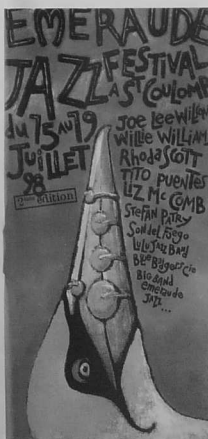 EMERAUDE
JAZZ FESTIVAL
A ST COULOMB
du 15 AU 19
JUILLET
98
édition
Joe Lee
Willie WilliAM
Rhoda Scott
Tito Puentes
Liz Mc Comb
Stefan Patry
Son del Fuego
Lulu Jazz Band
Big Band
emeraude
JAZZ...